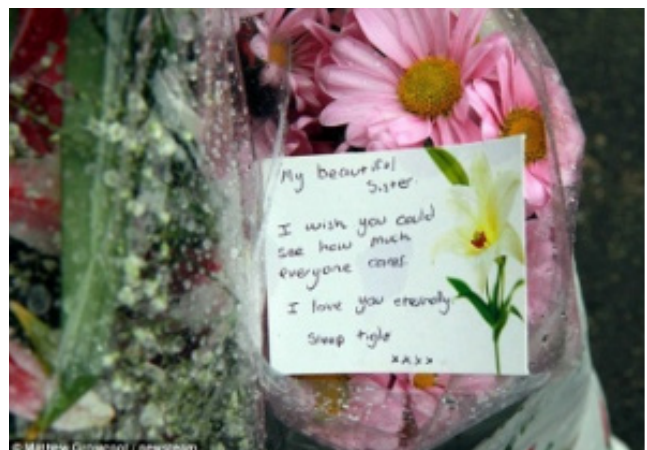 My beautiful
Sister.
I wish you could
see how much
everyone cares.
I love you eternally.
Sleep tight
xxxx
© Matthew / newsteam